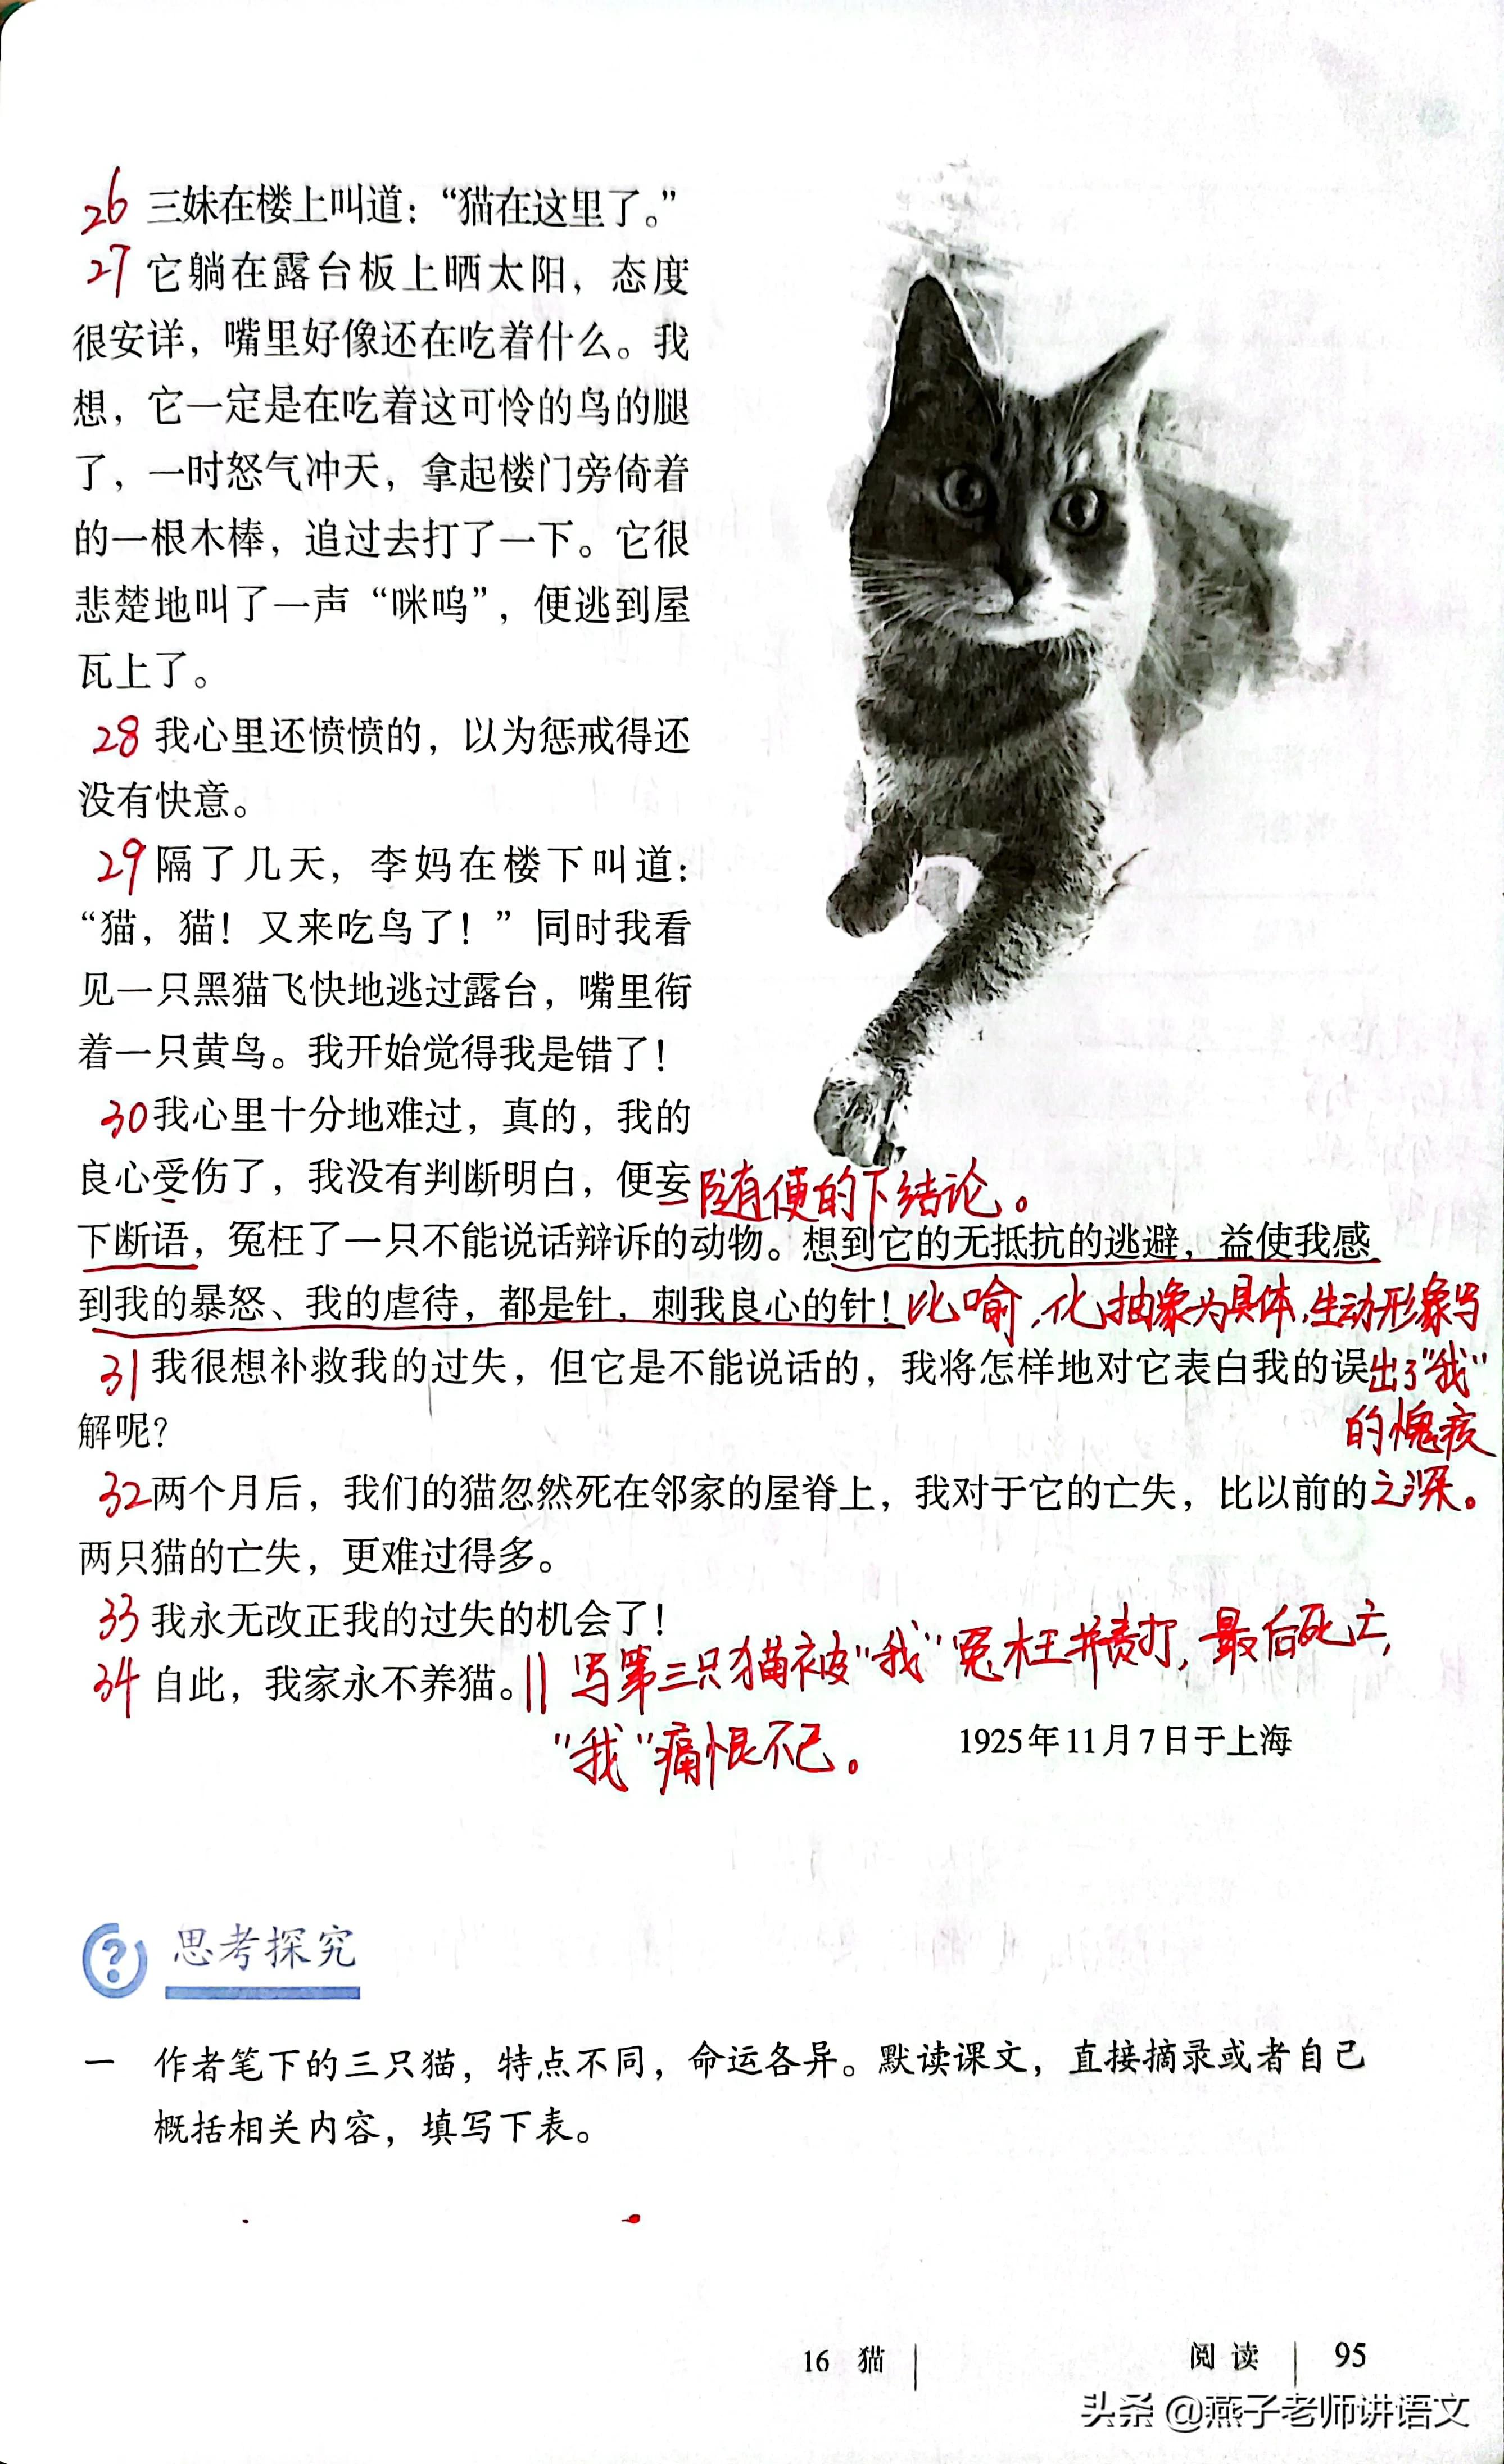 26 三妹在楼上叫道：“猫在这里了。”
27 它躺在露台板上晒太阳，态度
很安详，嘴里好像还在吃着什么。我
想，它一定是在吃着这可怜的鸟的腿
了，一时怒气冲天，拿起楼门旁倚着
的一根木棒，追过去打了一下。它很
悲楚地叫了一声“咪呜”，便逃到屋
瓦上了。
28 我心里还愤愤的，以为惩戒得还
没有快意。
29 隔了几天，李妈在楼下叫道：
“猫，猫！又来吃鸟了！”同时我看
见一只黑猫飞快地逃过露台，嘴里衔
着一只黄鸟。我开始觉得我是错了！
30 我心里十分地难过，真的，我的
良心受伤了，我没有判断明白，便妄 随便的下结论。
下断语，冤枉了一只不能说话辩诉的动物。想到它的无抵抗的逃避，益使我感
到我的暴怒、我的虐待，都是针，刺我良心的针！比喻，化抽象为具体，生动形象写
31 我很想补救我的过失，但它是不能说话的，我将怎样地对它表白我的误 出了“我”
解呢？ 的愧疚
32 两个月后，我们的猫忽然死在邻家的屋脊上，我对于它的亡失，比以前的 之深。
两只猫的亡失，更难过得多。
33 我永无改正我的过失的机会了！
34 自此，我家永不养猫。|| 写第三只猫被“我”冤枉并责打，最后死亡，
“我”痛恨不已。
1925年11月7日于上海
思考探究
一 作者笔下的三只猫，特点不同，命运各异。默读课文，直接摘录或者自己
概括相关内容，填写下表。
16 猫 | 阅读 | 95
头条 @燕子老师讲语文